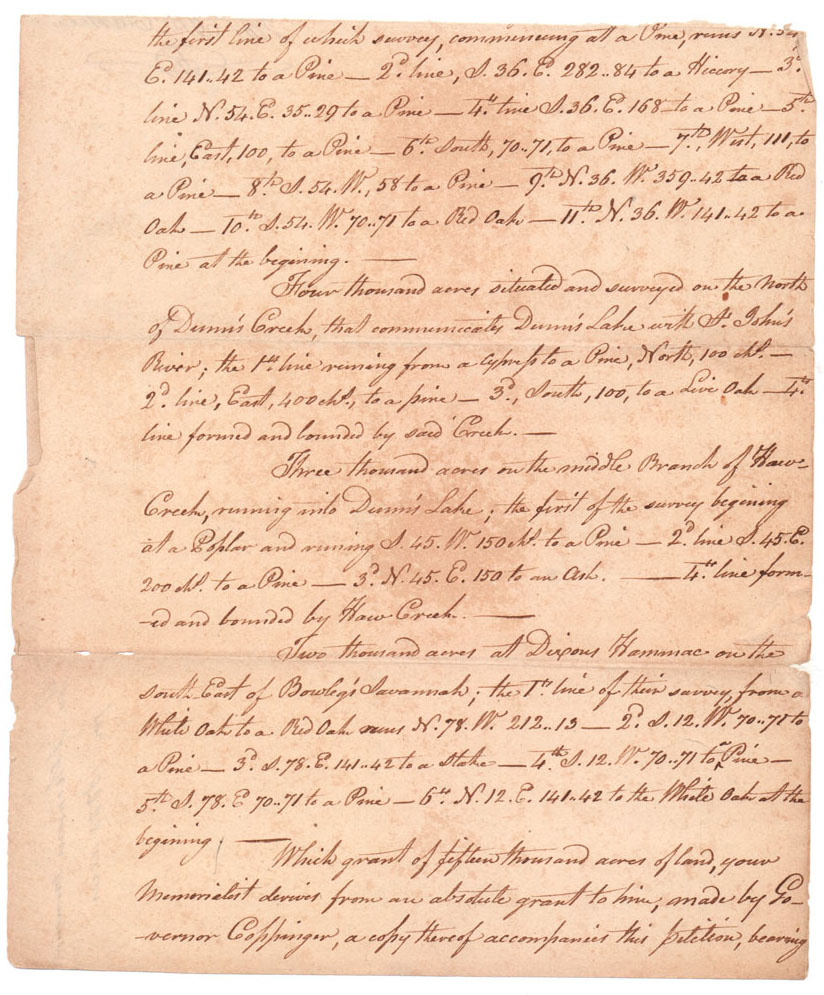 the first line of which survey, commencing at a Pine, runs N. 54
E. 141..42 to a Pine — 2d. line, S. 36. E. 282..84 to a Hiccory — 3d.
line N. 54. E. 35..29 to a Pine — 4th line S. 36. E. 168 to a Pine — 5th.
line, East, 100, to a Pine — 6th. South, 70..71, to a Pine — 7th., West, 111, to
a Pine — 8th. S. 54. W., 58 to a Pine — 9th. N. 36. W. 359..42 to a Red
Oak — 10th. S. 54. W. 70..71 to a Red Oak — 11th. N. 36. W. 141..42 to a
Pine at the begining. —
Four thousand acres situated and surveyed on the North
of Dunn's Creek, that communicates Dunn's Lake with St. John's
River; the 1st. line running from a Cypress to a Pine, North, 100 chs. —
2d. line, East, 400 chs., to a pine — 3d., South, 100, to a Live Oak — 4th
line formed and bounded by said Creek. —
Three thousand acres on the middle Branch of Haw-
Creek, running into Dunn's Lake; the first of the survey begining
at a Poplar and running S. 45. W. 150 chs. to a Pine — 2d line S. 45. E.
200 chs. to a Pine — 3d. N. 45. E. 150 to an Ash. — 4th. line form-
-ed and bounded by Haw Creek. —
Two thousand acres at Dixons Hammac on the
south East of Bowleg's Savannah; the 1st. line of their survey, from a
White Oak to a Red Oak runs N. 78. W. 212..13 — 2d. S. 12. W. 70..71 to
a Pine — 3d. S. 78. E. 141..42 to a Stake — 4th. S. 12. W. 70..71 to a Pine —
5th S. 78. E 70..71 to a Pine — 6th. N. 12. E. 141..42 to the White Oak at the
begining —
Which grant of fifteen thousand acres of land, your
Memorialist derives from an absolute grant to him, made by Go-
-vernor Coppinger, a copy thereof accompanies this petition, bearing